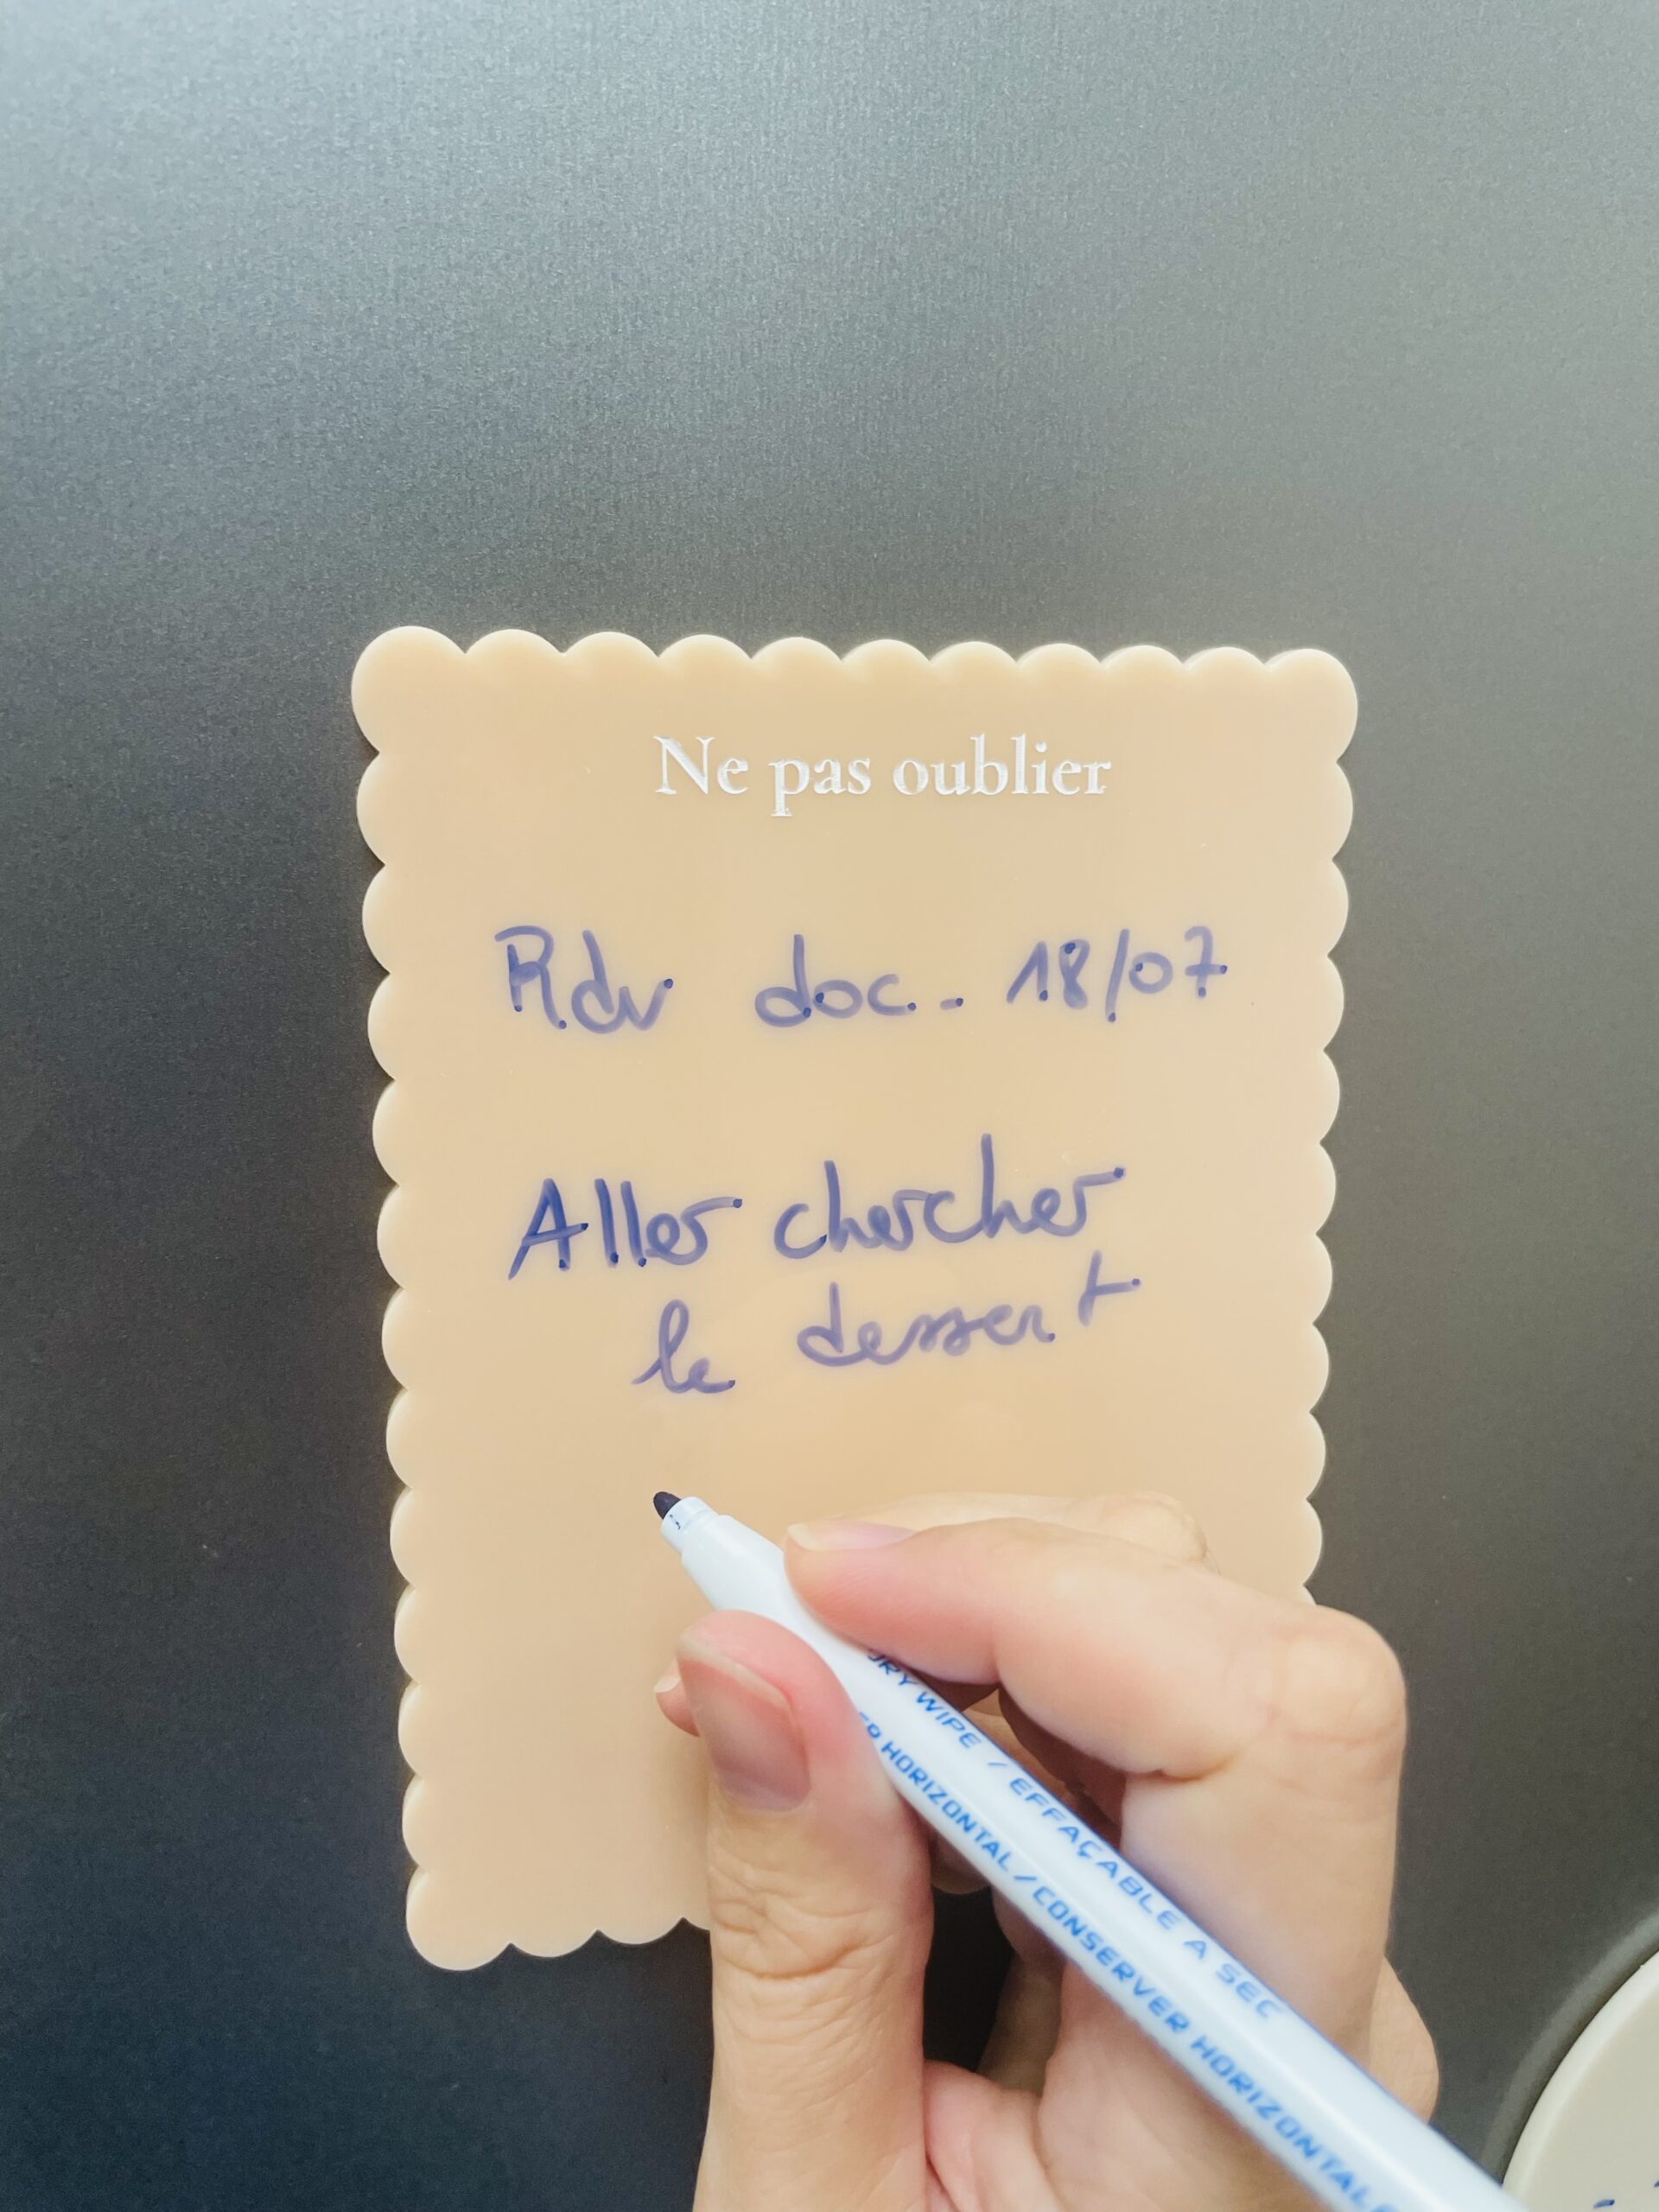 Ne pas oublier
Rdv doc. - 18/07
Aller chercher
le dessert
DRY WIPE / EFFAÇABLE A SEC
HORIZONTAL / CONSERVER HORIZONTALE